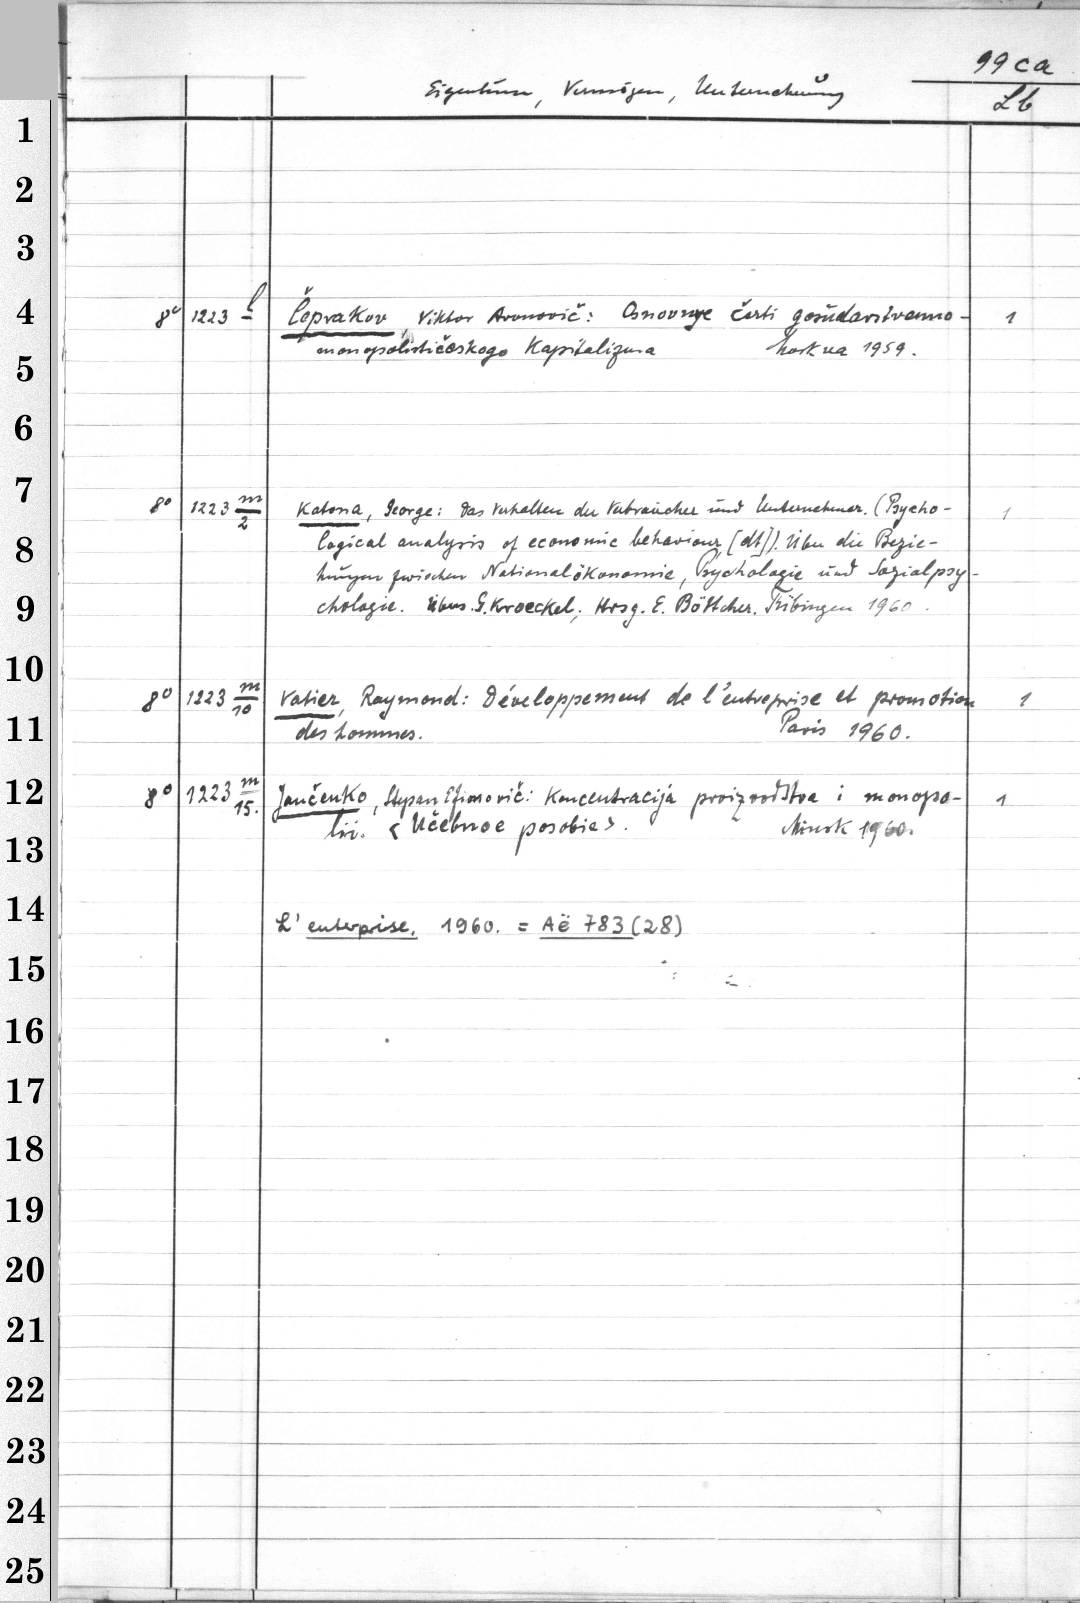 99 ca
Eigentum, Vermögen, Unternehmung
Lb
1
2
3
4 8° 1223 l Čeprakov, Viktor Aronovič: Osnovnye čerti gosudarstvenno- 1
monopolističeskogo Kapitalizma Moskva 1959.
5
6
7 8° 1223 m/2 Katona, George: Das Verhalten der Verbraucher und Unternehmer. (Psycho- 1
8 logical analysis of economic behaviour [dt]). Über die Bezie-
hungen zwischen Nationalökonomie, Psychologie und Sozialpsy-
9 chologie. Übers. G. Kroeckel, Hrsg. E. Böttcher. Tübingen 1960.
10
8° 1223 m/10 Vatier, Raymond: Développement de l'entreprise et promotion 1
11 des hommes. Paris 1960.
12 8° 1223 m/15. Jančenko, Stepan Efimovič: Koncentracija proizvodstva i monopo- 1
13 lii. <Učebnoe posobie>. Minsk 1960.
14 L' enterprise, 1960. = Aë 783 (28)
15
16
17
18
19
20
21
22
23
24
25